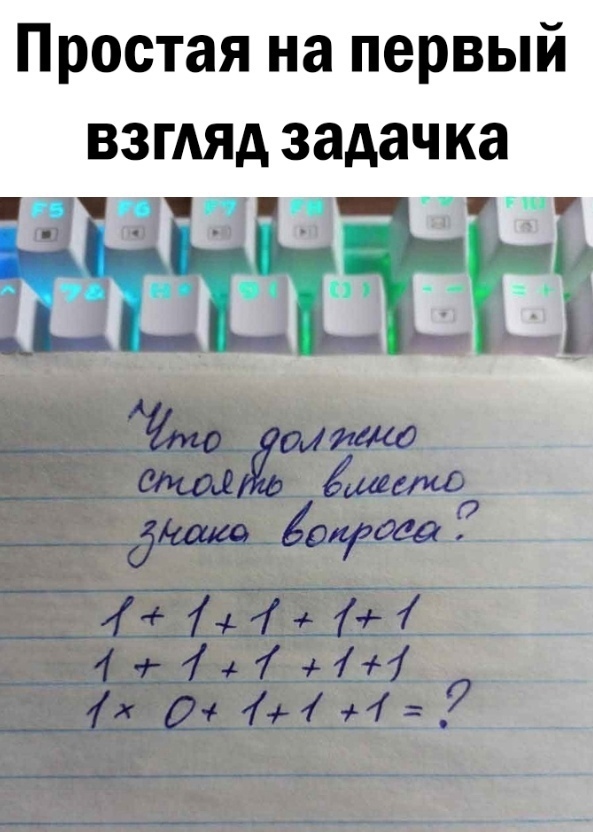 Простая на первый
взгляд задачка
F5 F6 F7 F8 F9 F10
^ 7& 8* 9( 0) - = +
Что должно
стоять вместо
знака вопроса?
1 + 1 + 1 + 1 + 1
1 + 1 + 1 + 1 + 1
1 × 0 + 1 + 1 + 1 = ?